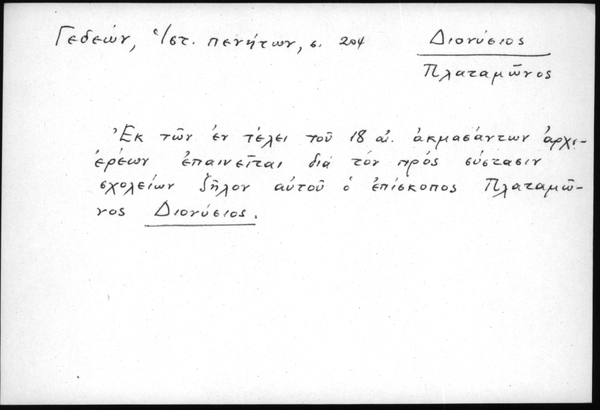 Γεδεών, Ἱστ. πενήτων, σ. 204
Διονύσιος
Πλαταμῶνος
Ἐκ τῶν ἐν τέλει τοῦ 18 αἰ. ἀκμασάντων ἀρχι-
ερέων ἐπαινεῖται διά τόν πρός σύστασιν
σχολείων ζῆλον αὐτοῦ ὁ ἐπίσκοπος Πλαταμῶ-
νος Διονύσιος.